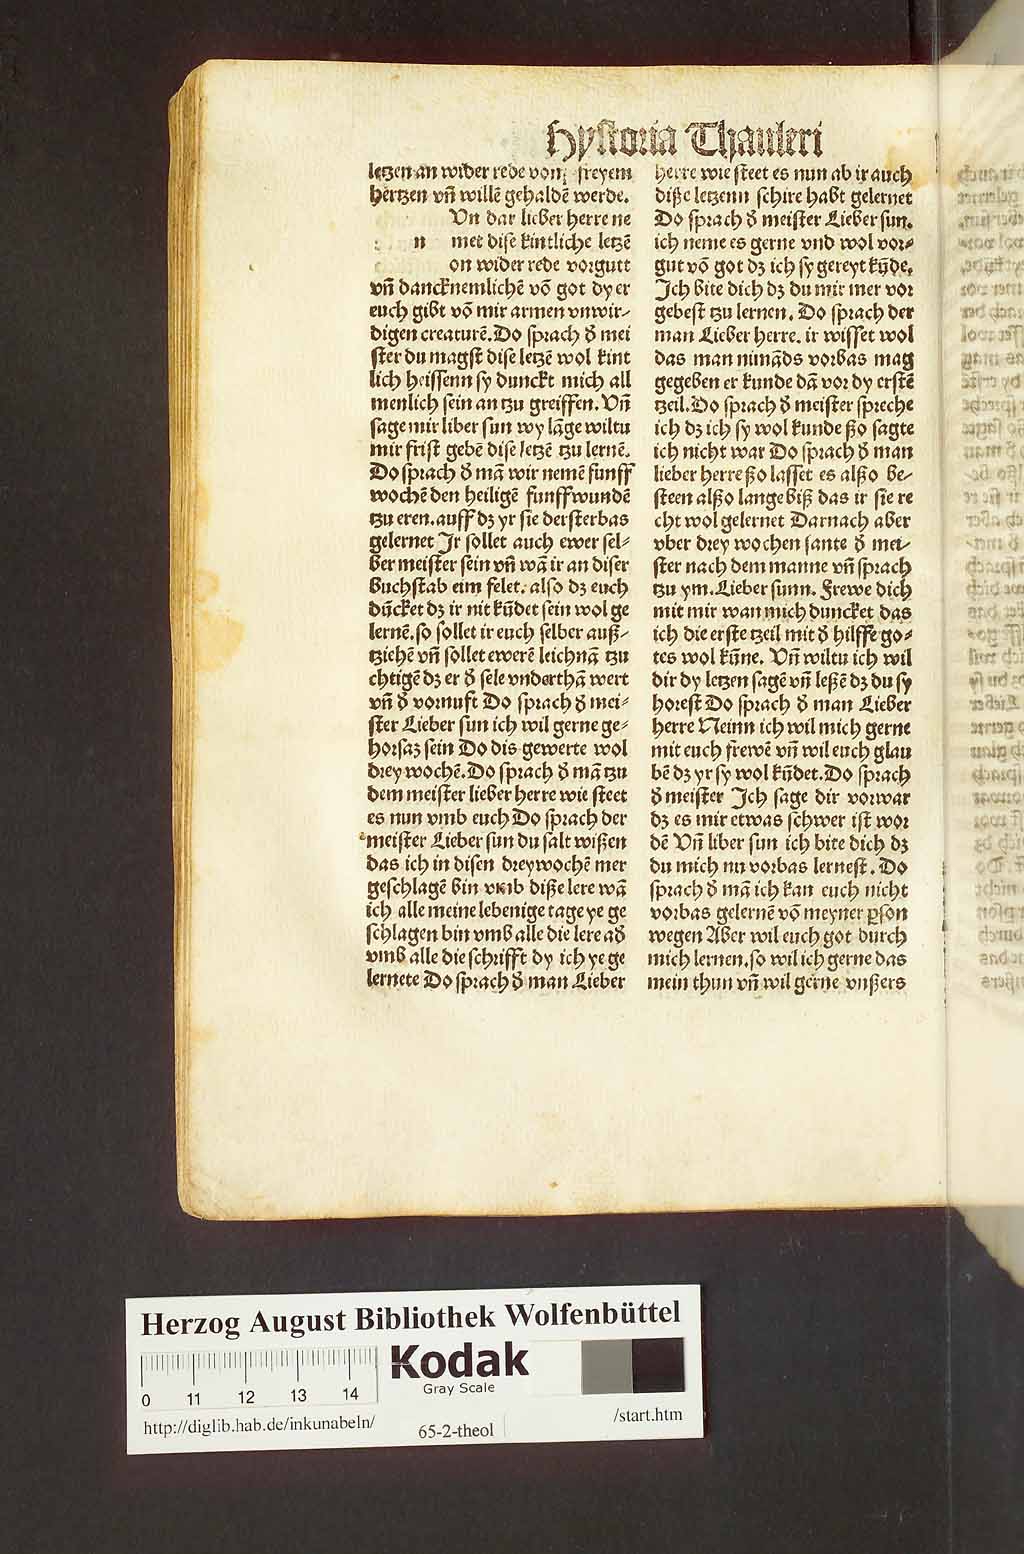 Hystoria Thauleri
letzen an wider rede von freyem
hertzen vñ willē gehaldē werde.
Vn dar lieber herre ne
n met dise kintliche letzē
on wider rede vorgutt
vñ dancknemlichē vō got dy er
euch gibt vō mir armen vnwir-
digen creaturē. Do sprach d̕ mei
ster du magst dise letzē wol kint
lich heissenn sy dunckt mich all
menlich sein an tzu greiffen. Vñ
sage mir liber sun wy lāge wiltu
mir frist gebē dise letzē tzu lernē.
Do sprach d̕ mā wir nemē funff
wochē den heiligē funffwundē
tzu eren. auff dz yr sie dersterbas
gelernet Jr sollet auch ewer sel-
ber meister sein vñ wā ir an diser
buchstab eim felet. also dz euch
dūcket dz ir nit kūdet sein wol ge
lernē. so sollet ir euch selber auß-
tziehē vñ sollet ewerē leichnā tzu
chtigē dz er d̕ sele vnderthā wert
vñ d̕ vornuft Do sprach d̕ mei-
ster Lieber sun ich wil gerne ge-
horsaz sein Do dis gewerte wol
drey wochē. Do sprach d̕ mā tzu
dem meister lieber herre wie steet
es nun vmb euch Do sprach der
meister Lieber sun du salt wißen
das ich in disen dreywochē mer
geschlagē bin vmb diße lere wā
ich alle meine lebenige tage ye ge
schlagen bin vmb alle die lere ad̕
vmb alle die schrifft dy ich ye ge
lernete Do sprach d̕ man Lieber
herre wie steet es nun ab ir auch
diße letzenn schire habt gelernet
Do sprach d̕ meister Lieber sun.
ich neme es gerne vnd wol vor-
gut vō got dz ich sy gereyt kūde.
Jch bite dich dz du mir mer vor
gebest tzu lernen. Do sprach der
man Lieber herre. ir wisset wol
das man nimāds vorbas mag
gegeben er kunde dā vor dy erstē
tzeil. Do sprach d̕ meister spreche
ich dz ich sy wol kunde ßo sagte
ich nicht war Do sprach d̕ man
lieber herre ßo lasset es alßo be-
steen alßo lange biß das ir sie re
cht wol gelernet Darnach aber
vber drey wochen sante d̕ mei-
ster nach dem manne vñ sprach
tzu ym. Lieber sunn. Frewe dich
mit mir wan mich duncket das
ich die erste tzeil mit d̕ hilffe go-
tes wol kūne. Vñ wiltu ich wil
dir dy letzen sagē vñ leßē dz du sy
horest Do sprach d̕ man Lieber
herre Neinn ich wil mich gerne
mit euch frewē vñ wil euch glau
bē dz yr sy wol kūdet. Do sprach
d̕ meister Jch sage dir vorwar
dz es mir etwas schwer ist wor
dē Vñ liber sun ich bite dich dz
du mich nu vorbas lernest. Do
sprach d̕ mā ich kan euch nicht
vorbas gelernē vō meyner ꝑson
wegen Aber wil euch got durch
mich lernen. so wil ich gerne das
mein thun vñ wil gerne vnßers
Herzog August Bibliothek Wolfenbüttel
Kodak
Gray Scale
0 11 12 13 14
http://diglib.hab.de/inkunabeln/ 65-2-theol /start.htm